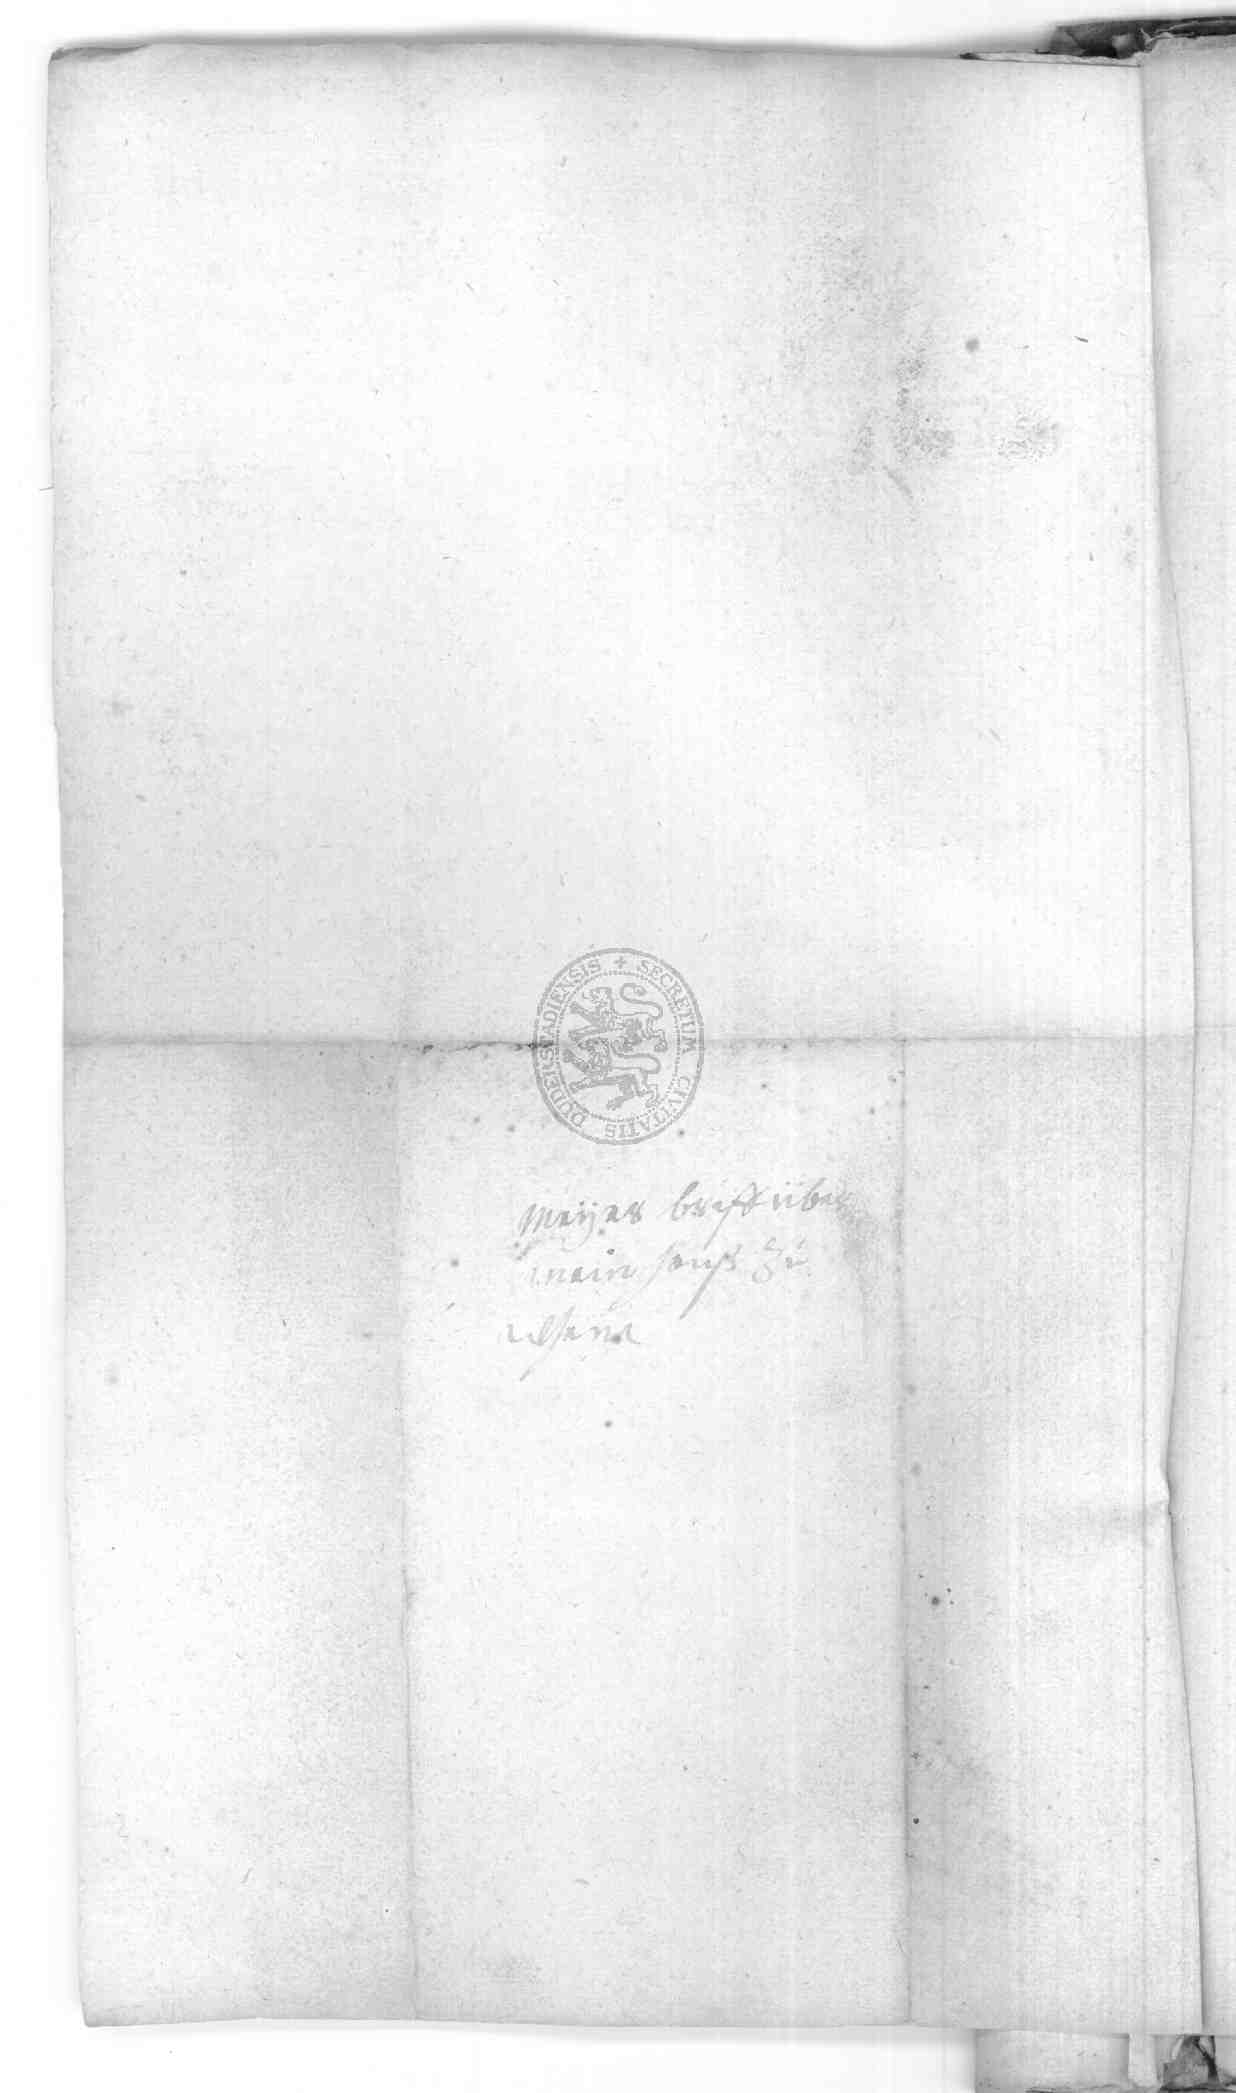 SECRETUM CIVITATIS DUDERSTADIENSIS
Meyer brieff über
mein hauß zu